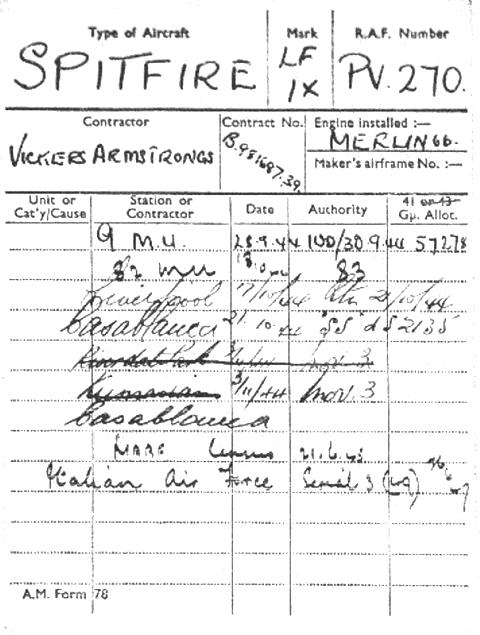 Type of Aircraft Mark R.A.F. Number
SPITFIRE LF IX PV.270.
Contractor Contract No. Engine installed :—
VICKERS ARMSTRONGS B.981687.39. MERLIN 66.
Maker's airframe No. :—
Unit or Cat'y/Cause Station or Contractor Date Authority 41 or 43 Gp. Allot.
9 M.U. 28.9.44 100/30.9.44 57278
82 MU 83
Liverpool 17/10/44 20/10/44
Casablanca 21.10.44 "SS" 2135
Nov 3
3/11/44 Nov. 3
Casablanca
MAAF Census 21.6.45
Italian Air Force Serial 3 26/6/47
A.M. Form 78